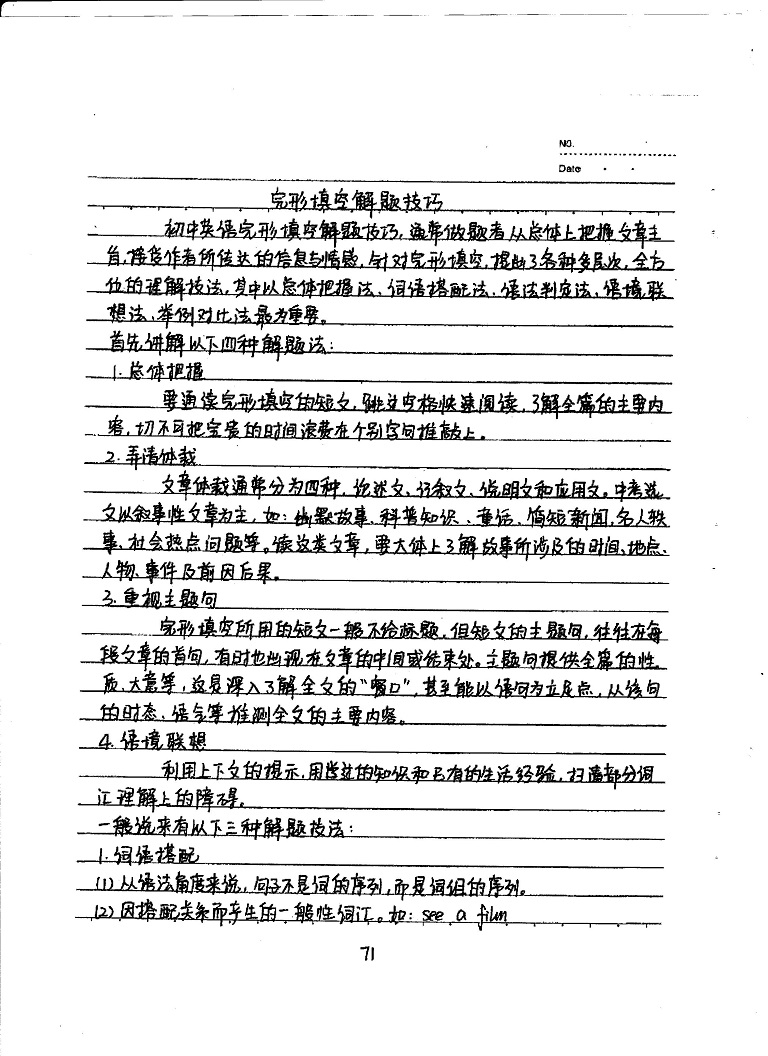 NO.
Date
完形填空解题技巧
初中英语完形填空解题技巧,通常做题者从总体上把握文章主
旨,接受作者所传达的信息与情感,针对完形填空,提出了各种多层次,全方
位的理解技法,其中以总体把握法、词语搭配法、语法判定法、语境联
想法、举例对比法最为重要。
首先讲解以下四种解题法:
1.总体把握
要通读完形填空的短文,跳过空格快速阅读,了解全篇的主要内
容,切不可把宝贵的时间浪费在个别字句推敲上。
2.弄清体裁
文章体裁通常分为四种,论述文、记叙文、说明文和应用文。中考选
文以叙事性文章为主,如:幽默故事、科普知识、童话、简短新闻,名人轶
事、社会热点问题等。读这类文章,要大体上了解故事所涉及的时间、地点、
人物、事件及前因后果。
3.重视主题句
完形填空所用的短文一般不给标题,但短文的主题句,往往在每
段文章的首句,有时也出现在文章的中间或结束处。主题句提供全篇的性
质、大意等,这是深入了解全文的“窗口”,甚至能以语句为立足点,从该句
的时态、语气等推测全文的主要内容。
4.语境联想
利用上下文的提示,用学过的知识和已有的生活经验,扫清部分词
汇理解上的障碍。
一般说来有以下三种解题技法:
1.词语搭配
(1)从语法角度来说,句子不是词的序列,而是词组的序列。
(2)因搭配关系而产生的一般性词汇。如:see a film
71